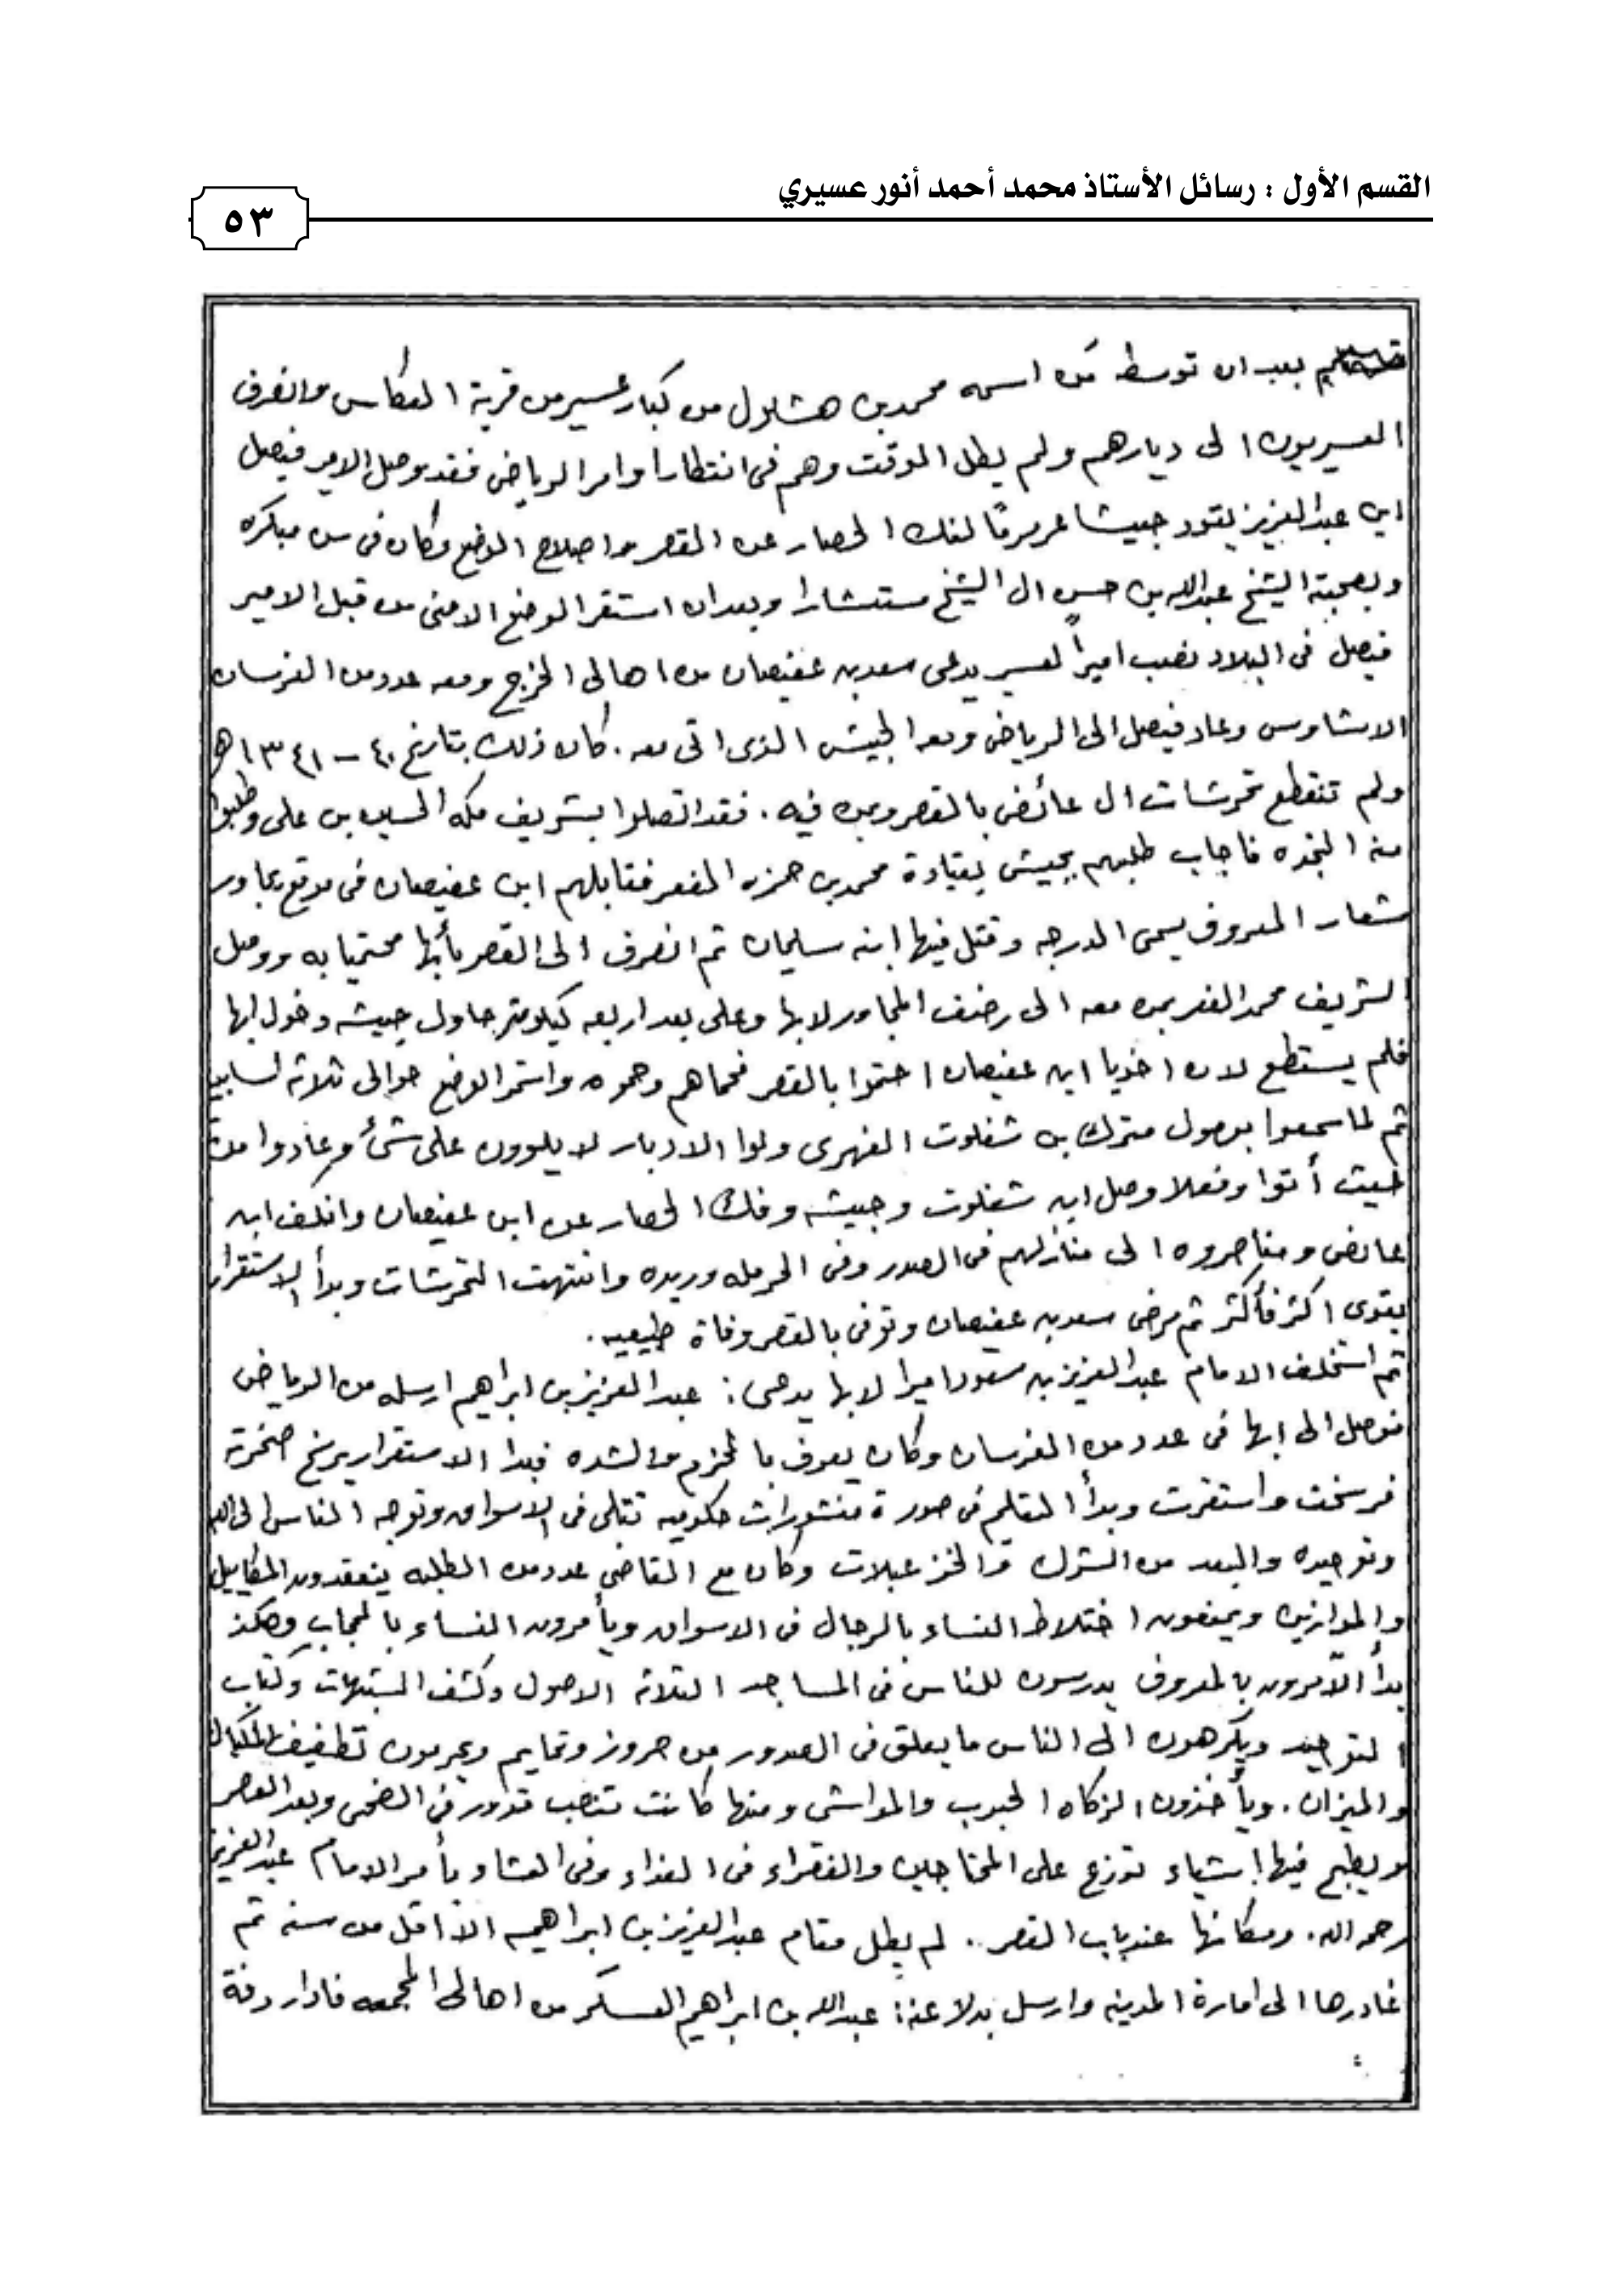 القسم الأول : رسائل الأستاذ محمد أحمد أنور عسيري
٥٣
بعد ان توسط من اسمه محمد بن هشلول من كبار عسير من قرية العكاس وانصرف
العسيريون الى ديارهم ولم يطل الموقت وهم فى انتظار اوامر الرياض فقد وصل الامير فيصل
ابن عبدالعزيز يقود جيشا عرمرمًا لفك الحصار عن القصر واصلاح الوضع وكان فى سن مبكره
وبصحبته الشيخ عبدالله بن حسن ال الشيخ مستشارا وبعد ان استقر الوضع الامنى من قبل الامير
فيصل فى البلاد نصب اميراً لعسير يدعى سعد بن عفيصان من اهالى الخرج ومعه عدد من الفرسان
الاشاوس وعاد فيصل الى الرياض ومعه الجيش الذى اتى معه . كان ذلك بتاريخ ٤٠ - ١٣٤١هـ
ولم تنقطع تحرشات ال عائض بالقصر ومن فيه . فقد اتصلوا بشريف مكه الحسين بن على وطلبوا
منه النجده فاجاب طلبهم بجيش بقيادة محمد بن حمزه الفعر فقابلهم ابن عفيصان فى موقع بجاور
شعار المعروف يسمى المدرجه وقتل فيها ابنه سليمان ثم انصرف الى القصر بأبها محتميا به ووصل
الشريف محمد الفعر بمن معه الى رضف المجاور لابها وعلى بعد اربعه كيلومتر حاول جيشه دخول ابها
فلم يستطع لان اخويا ابن عفيصان احتموا بالقصر فحماهم وحموه واستمر الوضع حوالى ثلاثه اسابيع
ثم لما سمعوا بوصول مترك بن شفلوت الفهرى ولوا الادبار لا يلوون على شئ وعادوا من
حيث أتوا وفعلا وصل ابن شفلوت وجيشه وفك الحصار عن ابن عفيصان وانكف ابن
عائض ومناصروه الى منازلهم فى الصدور وفى الحرمله وريده وانتهت التحرشات وبدأ الاستقرار
يقوى اكثر فأكثر ثم مرض سعد بن عفيصان وتوفى بالقصر وفاة طبيعيه .
ثم استخلف الامام عبدالعزيز بن سعود اميرا لابها يدعى : عبدالعزيز بن ابراهيم ارسله من الرياض
فوصل الى ابها فى عدد من الفرسان وكان يعرف بالحزم والشده فبدا الاستقرار يرسخ صخرته
فرسخت واستقرت وبدأ التعليم فى صورة منشورات حكوميه تتلى فى الاسواق وتوجه الناس الى الله
وتوحيده والبعد من الشرك والخزعبلات وكان مع القاضى عدد من الطلبه يتفقدون المكاييل
والموازين ويمنعون اختلاط النساء بالرجال فى الاسواق ويأمرون النساء بالحجاب وهكذ
بدأ الآمرون بالمعروف يدرسون للناس فى المساجد الثلاثه الاصول وكشف الشبهات وكتاب
التوحيد ويكرهون الى الناس ما يعلق فى الصدور من حروز وتمايم ويحرمون تطفيف المكيال
والميزان . ويأخذون الزكاه الحبوب والمواشى ومنها كانت تنصب قدور فى الضحى وبعد العصر
ويطبخ فيها اشياء توزع على المحتاجين والفقراء فى الغداء وفى العشاء بأمر الامام عبدالعزيز
رحمه الله . ومكانها عند باب القصر .. لم يطل مقام عبدالعزيز بن ابراهيم الا اقل من سنه ثم
غادرها الى امارة المدينه وارسل بدلا عنه : عبدالله بن ابراهيم العسكر من اهالى المجمعه فادار دفة